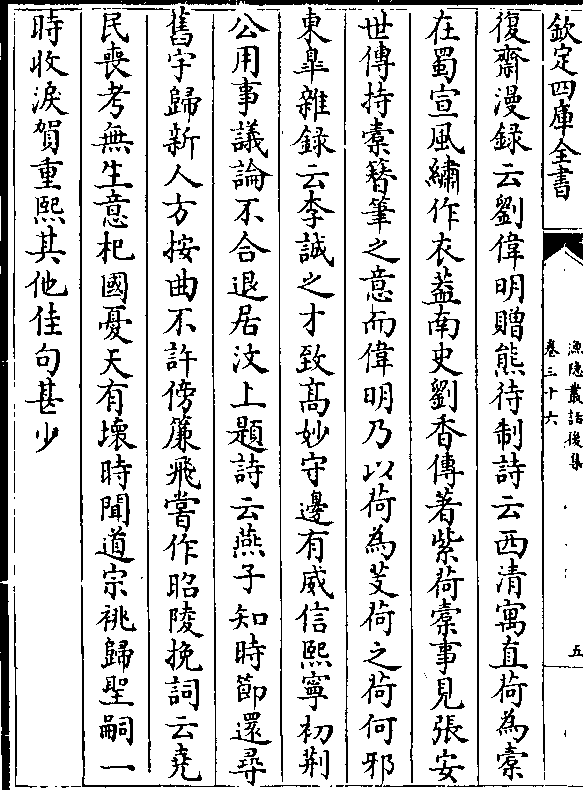 欽定四庫全書
漁隠叢話後集
卷三十六
五
復齋漫録云劉偉明贈熊待制詩云西清寓直荷為橐
在蜀宣風繡作衣葢南史劉香傳著紫荷橐事見張安
世傳持橐簪筆之意而偉明乃以荷為芰荷之荷何邪
東臯雜録云李誠之才致髙妙守邊有威信熙寧初荆
公用事議論不合退居汶上題詩云燕子知時節還尋
舊宇歸新人方按曲不許傍簾飛嘗作昭陵挽詞云堯
民喪考無生意杞國憂天有壞時聞道宗祧歸聖嗣一
時收淚賀重熙其他佳句甚少